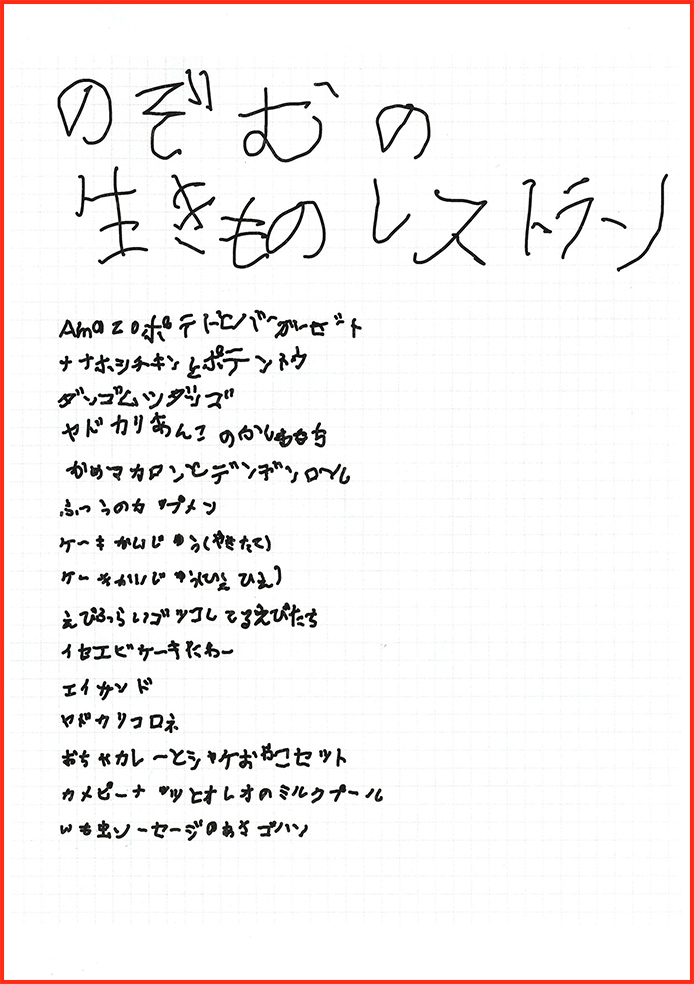 のぞむの
生きものレストラン
AmazoポテトとバーガーセDット
ナナホシチキンとポテントウ
ダンゴムツダッズ
ヤドカリあんこのかしわもち
かめマカロンとデンデンロール
ふつうのカップメン
ケーキかいじゅう(やきたて)
ケーキかいじゅう(ひえひえ)
えびふらいゴッコしてるえびたち
イセエビケーキたわー
エイサンド
ヤドカリコロネ
おちゃカレーとシャケおやこセット
カメピーナッツとオレオのミルクプール
いも虫ソーセージのあさゴハン